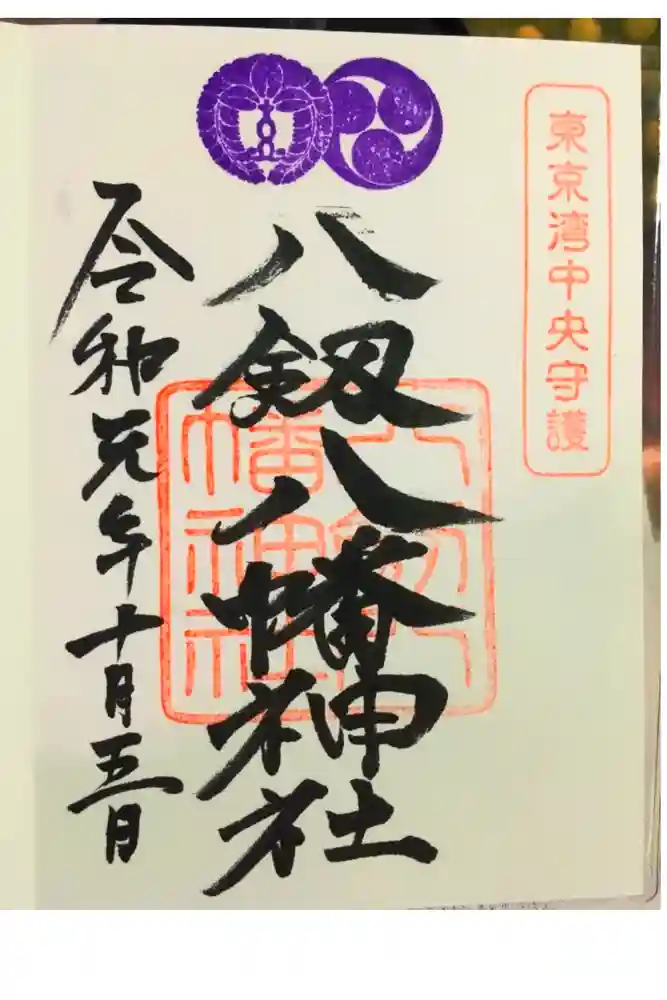 東京湾中央守護
八剱八幡神社
令和元年十月五日